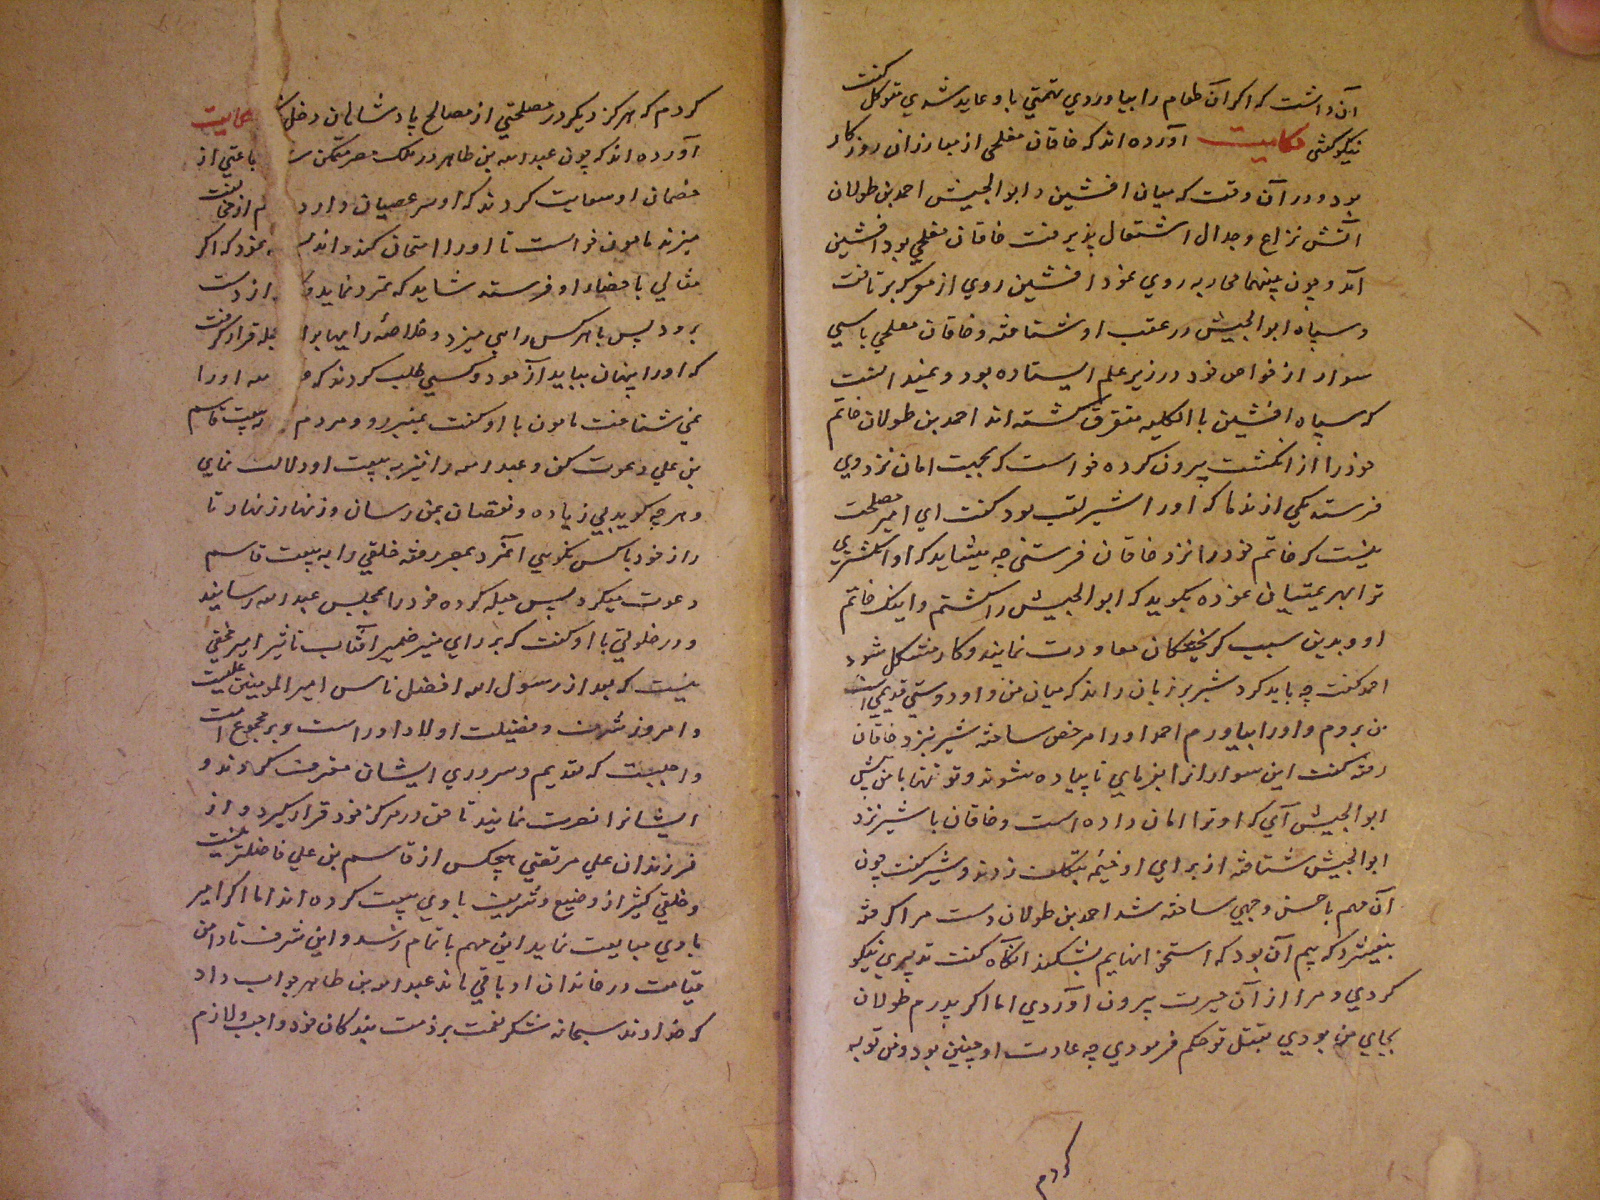 آن داشت که اگر آن طعام را بیاوردی تهمتی باو عاید شدی متوکل گفت
نیکو گفتی حکایت آورده اند که خاقان مفلحی از مبارزان روزگار
بود و در آن وقت که میان افشین و ابوالجیش احمد بن طولان
آتش نزاع و جدال اشتعال پذیرفت خاقان مفلحی بود افشین
آمد و چون بینهما محاربه روی نمود افشین روی از معرکه برتافت
و سپاه ابوالجیش در عقب او شتافته و خاقان مفلحی با سی
سوار از خواص خود در زیر علم ایستاده بود و نمیدانست
که سپاه افشین بالکلیه متفرق گشته اند احمد بن طولان خاتم
خود را از انگشت بیرون کرده خواست که بجهت امان نزد وی
فرستد یکی از ندما که او را شیر لقب بود گفت ای امیر مصلحت
نیست که خاتم خود را نزد خاقان فرستی چه میشاید که او انگشتری
ترا بهر یمتیان نموده بگوید که ابوالجیش را کشتم و اینک خاتم
او و بدین سبب گریختگان معاودت نمایند و کار مشکل شود
احمد گفت چه باید کرد شیر بر زبان راند که میان من و او دوستی قدیمی است
من بروم و او را بیاورم احمد او را مرخص ساخته شیر نزد خاقان
رفته گفت این سوارانرا بفرمای تا پیاده شوند و تو تنها با من پیش
ابوالجیش آی که او ترا امان داده است و خاقان با شیر نزد
ابوالجیش شتافته از برای او خیمه بتکلف زدند و شیر گفت چون
آن مهم باحسن وجهی ساخته شد احمد بن طولان دست مرا گرفته
بیفشرد که بیم آن بود که استخوانهایم بشکند آنگاه گفت تدبیری نیکو
کردی و مرا از آن حیرت بیرون آوردی اما اگر پدرم طولان
بجای من بودی بقتل تو حکم فرمودی چه عادت او چنین بود و من توبه
کردم
کردم که هرگز دیگر در مصلحتی از مصالح پادشاهان دخل حکایت
آورده اند که چون عبدالله بن طاهر در ملک مصر متمکن باعثی از
خصمان او سعایت کردند که او سر عصیان دارد
میزند مامون خواست تا او را امتحان کند بخود که اگر
مثالی باحضار او فرسته شاید که تمرد نماید از دست
برود پس با هر کس رای میزد و خلاصه رایها بر قرار گرفت
که او را پنهان بباید آزمود و کسی طلب کردند که او را
نمی شناخت مامون با او گفت بمصر رو و مردم بیعت قاسم
بن علی دعوت کن و عبدالله را نیز به بیعت او دلالت نمای
و هر چه گوید بی زیاده و نقصان بمن رسان و زنهار زنهار تا
راز خود با کس نگویی آنمرد بمصر رفته خلقی را به بیعت قاسم
دعوت میکرد پس حیله کرده خود را بمجلس عبدالله رسانید
و در خلوتی با او گفت که بر رای منیر ضمیر آفتاب تاثیر امیر مخفی
نیست که بعد از رسول الله افضل ناس امیرالمومنین علیست
و امروز شرف و فضیلت اولاد او راست و بر مجموع امت
واجبست که بتقدیم و سروری ایشان معترف گردند و
ایشانرا نصرت نمایند تا حق در مرکز خود قرار گیرد و از
فرزندان علی مرتضی هیچکس از قاسم بن علی فاضلتر نیست
و خلقی کثیر از وضیع و شریف با وی بیعت کرده اند اما اگر امیر
با وی مبایعت نماید این مهم باتمام رسد و این شرف تا دامن
قیامت در خاندان او باقی ماند عبدالله بن طاهر جواب داد
که خداوند سبحانه شکر نعمت بر ذمت بندگان خود واجب و لازم